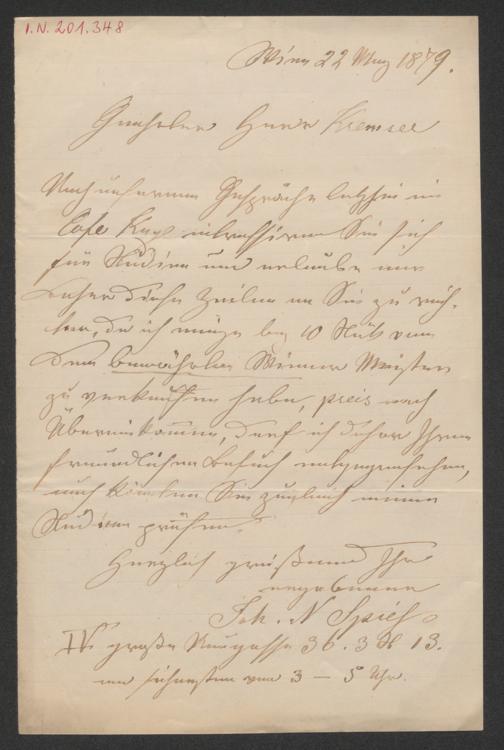 I.N. 201.348
Wien 22 März 1879.
Geehrter Herr Kremser
Nach unserem Gespräche letzthin im
Cafe interessieren Sie sich
für Studien und erlaube mir
daher diese Zeilen an Sie zu rich-
ten, da ich einige bey 10 Stük von
dem bewährten Wiener Meister
zu verkaufen habe, preis nach
Übereinkommen, darf ich daher Ihren
freundlichen Besuch entgegensehen,
auch könnten Sie zugleich meine
Studien prüfen.
Herzlich grüßend Ihr
ergebener
Joh. N Spiess
IV. große Neugasse 36. 3 St 13.
am sichersten von 3 – 5 Uhr.